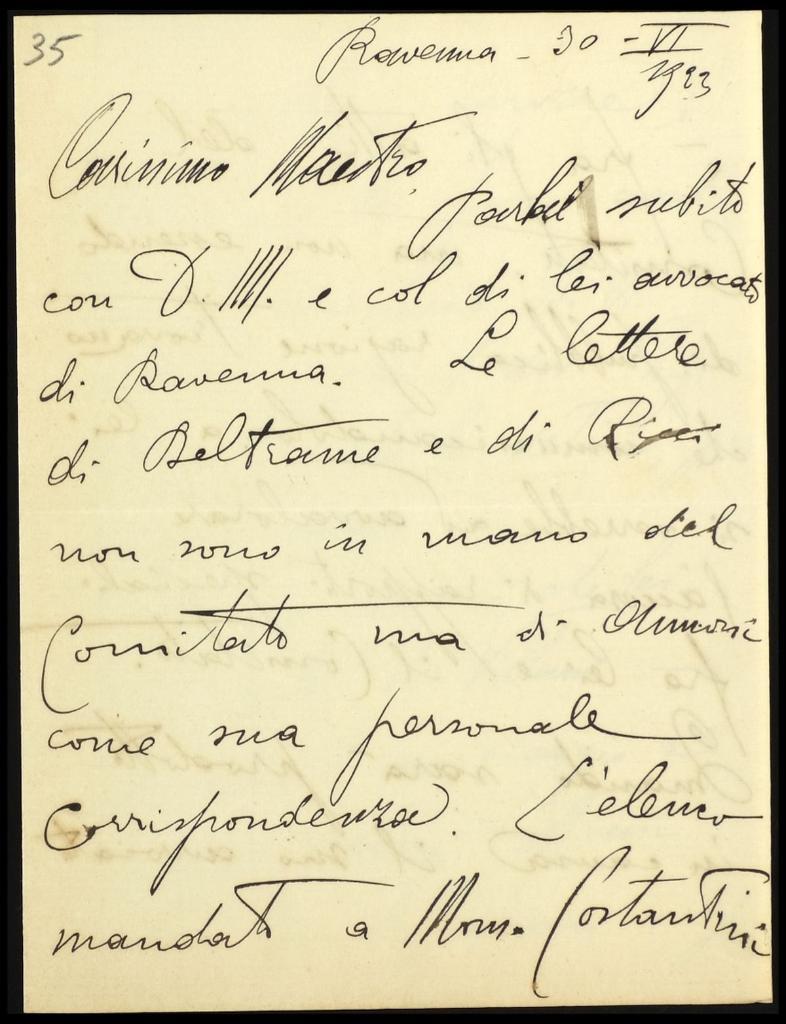 35
Ravenna - 30 - VI
1923
Carissimo Maestro,
Parlai subito
con D. M. e col di lei avvocato
di Ravenna. Le lettere
di Beltrame e di Ricci
non sono in mano del
Comitato ma di
come sua personale
Corrispondenza. L'elenco
mandato a Mons. Costantini